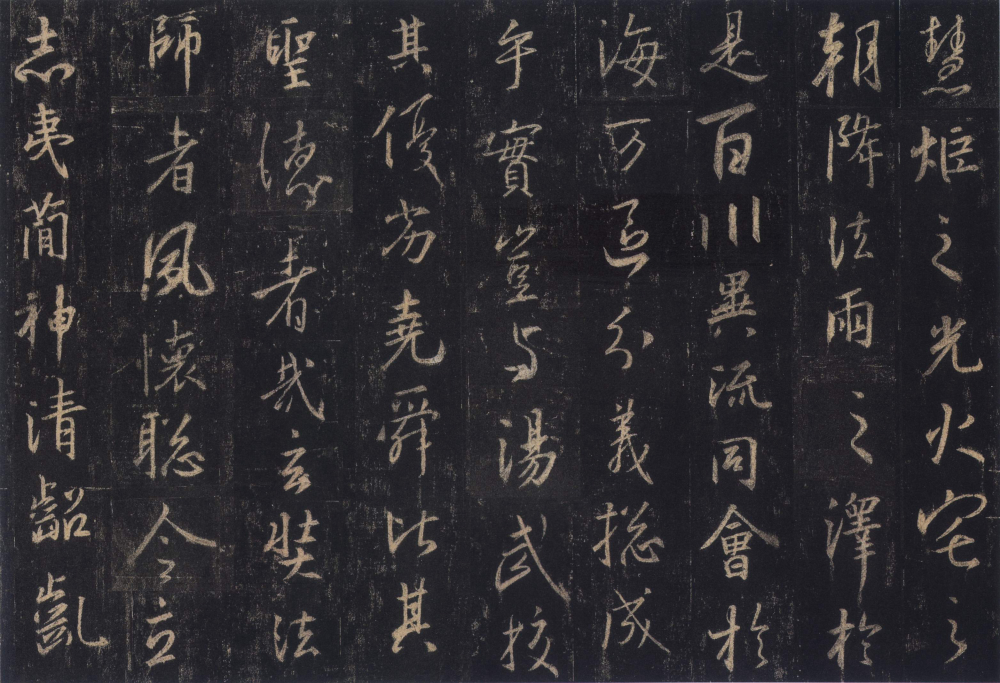 慧炬之光火宅之
朝降法雨之澤於
是百川異流同會於
海万區分義揔成
乎實豈与湯武校
其優劣堯舜比其
聖德者哉玄奘法
師者夙懷聡令立
志夷簡神清齠齔